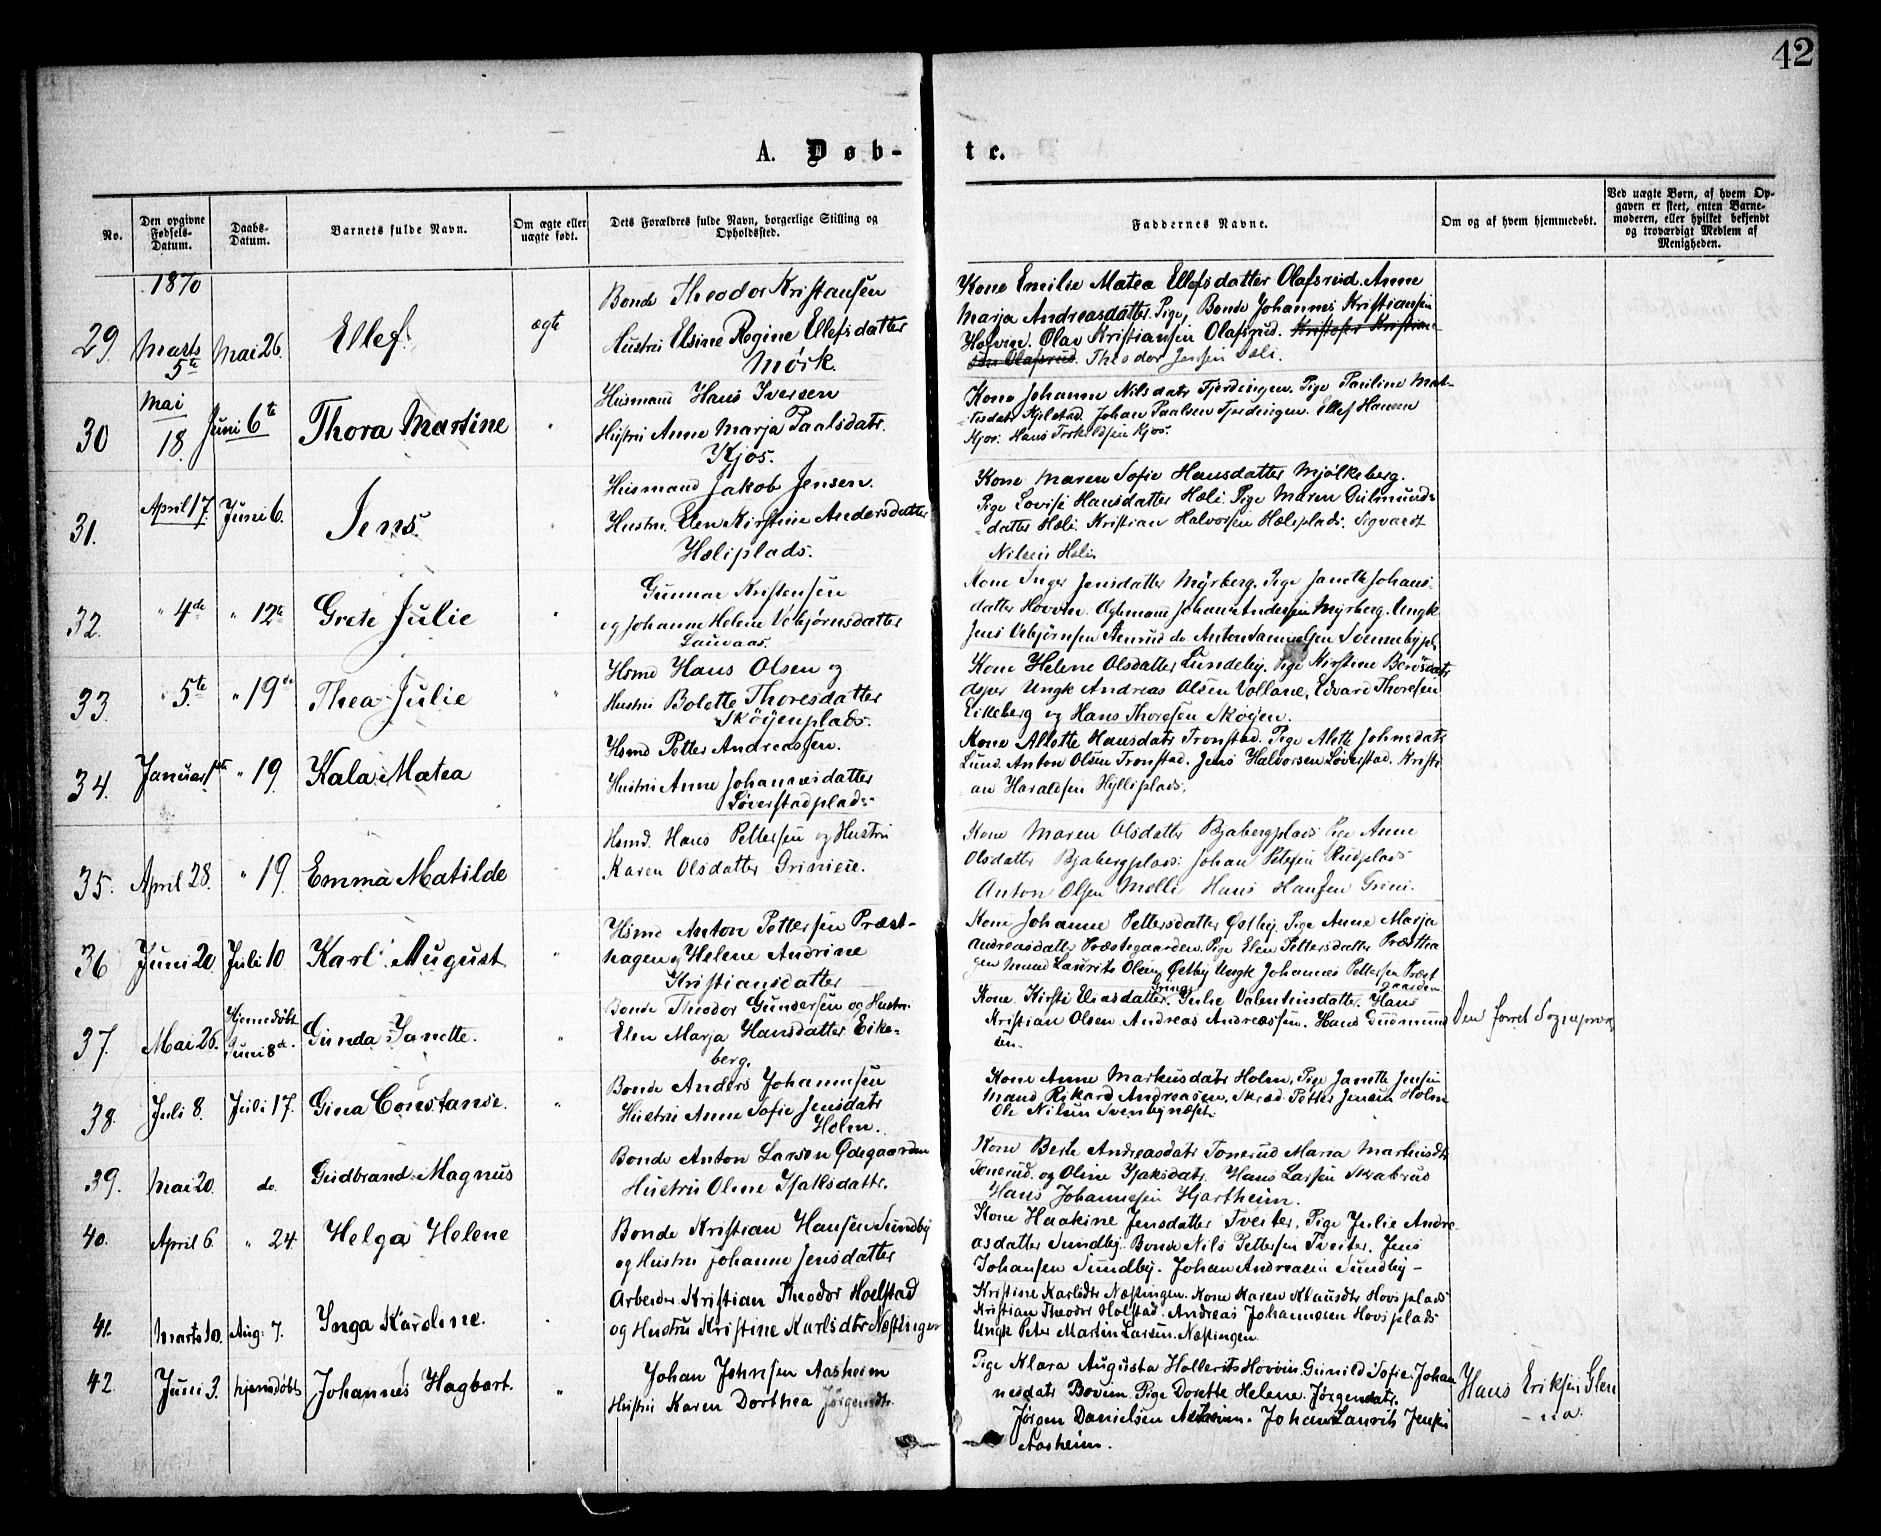 42
A. Døb-
te.
No.
Den opgivne Fødsels-Datum.
Daabs-Datum.
Barnets fulde Navn.
Om ægte eller uægte født.
Dets Forældres fulde Navn, borgerlige Stilling og Opholdssted.
Faddernes Navne.
Om og af hvem hjemmedøbt.
Ved uægte Børn, af hvem Op-
gaven er skeet, enten Barne-
moderen, eller hvilket bekjendt
og troværdigt Medlem af
Menigheden.
1870
29 Marts 5te Mai 26. Ellef. ægte
Bonde Theodor Kristansen
Hustru Elsine Regine Ellefsdatter
Mörk.
Kone Emilie Matea Ellefsdatter Olafsrud. Anne
Marja Andreasdatter. Pige, Bonde Johannes Kristiansen
Holvin. Olav Kristiansen Olafsrud. Kristofer Kristian-
sen Olafsrud. Theodor Jensen Hæli.
30 Mai 18. Juni 6te Thora Martine "
Husmand Hans Iversen
Hustru Anne Marja Paalsdatr.
Kjos.
Kone Johanne Nilsdatr Fjerdingen. Pige Pauline Mat-
Kjilstad. Johan Paalsen Fjerdingen. Ellef Hansen
Kjos. Hans Torkildsen Kjos.
31. April 17. June 6. Jens. "
Husmand Jakob Jensen.
Hustru. Elen Kirstine Andersdatter
Hæliplads.
Kone Maren Sofie Hansdatter Mjölkeberg.
Pige Lovise Hansdatter Hæli. Pige Maren Gulmunds-
datter Hæli. Kristian Halvorsen Hæliplads. Sigvardt
Nilsen Hæli.
32. " 4de " 12te Grete Julie "
Gunnar Kristensen
og Johanne Helene Vebjørnsdatter
Lauvaas.
Kone Inger Jensdatter Myrberg. Pige Janette Johans-
datter Hovin. Johan Andersen Myrberg. Ungk
Jens Vebjørnsen Stenrud do Anton Samuelsen
33. " 5te " 19de Thea Julie "
Hsmd Hans Olsen og
Hustru Bolette Thoresdatter
Sköyenplads.
Kone Helene Olsdatter Lundeby. Pige Kirstine
Ungk Andreas Olsen Vollane, Edvard Thoresen
Eikeberg og Hans Thoresen Sköyen.
34. Januar 1ste " 19 Kala Matea
Hsmd Petter Andreassen.
Hustru Anne Johannesdatter
Löverstadplads
Kone Allette Hansdatr Tronstad. Pige Alette Johnsdatr
Lund. Anton Olsen Tronstad. Jens Halvorsen Löverstad. Kristi
an Haraldsen Hylliplads.
35. April 28. " 19. Emma Matilde
Hsmd. Hans Pettersen og Hustru
Karen Olsdatter Grinieie.
Kone Maren Olsdatter Bjabergplads Pige Anne
Olsdatter Bjabergplads. Johan Petersen Rudplads
Anton Olsen Mölli Hans Hansen Grini.
36 Juni 20. Juli 10 Karl August "
Hsmd Anton Pettersen Præst-
hagen og Helene Andrine
Kristiansdatter
Kone Johanne Pettersdatter Østby. Pige Anne Marja
Andreasdatter Præstegaarden. Pige Elen Pettersdatter Præstha
gen Mand Laurits Olsen Østby Ungk Johannes Pettersen Præst
gaarden
37. Mai 26. Hjemmedøbt Juni 8de. Gunda Janette. "
Bonde Theodor Gundersen og Hustru
Elen Marja Hansdatter Eike-
berg.
Kone. Kirsti Eliasdatter. Gulie Valentinsdatter. Hans
Kristian Olsen. Andreas Andreassen. Hans Gudmund
sen.
Den forret Sognepræst
38. Juli 8. Juli 17. Gina Constanse. "
Bonde Anders Johannesen
Hustru Anne Sofie Jensdatr
Holm.
Kone Anne Markusdatr Holm. Pige Janette Jensen
Mand Rikard Andreasen. Skræd. Petter Jensen Holm
Ole Nilsen Svenbynæset.
39. Mai 20. do. Gudbrand Magnus
Bonde Anton Larsen Ødegaarden
Hustru Oline Isaksdattr.
Kone Berte Andreasdatr Tonerud Maria Martinsdtr
Tonerud. og Oline Isaksdatr. Hans Larsen Skabrud
Hans Johannesen Hjartheim.
40. April 6. " 24. Helga Helene
Bonde Kristian Hansen Sundby
og Hustru Johanne Jensdatter
Kone Haakine Jensdatter Tveiter. Pige Julie Andre
asdatter Sundby. Bonde Nils Pettersen Tveiter. Jens
Johansen Sundby. Johan Andreasen Sundby -
41. Marts 10. Aug: 7. Inga Karoline.
Arbeider Kristian Theodor Hoelstad
og Hustru Kristine Karlsdtr Næstingen
Kristine Karlsdtr Næstingen. Kone Karen Klausdtr Hovisplads
Kristian Theodor Holstad. Andreas Johannesen Hovisplads
Ungk Peter Martin Larsen. Næstingen.
42. Juni 3. hjemdøbt Johannes Hagbart. "
Johan Johnsen Aasheim
Hustru Karen Dorthea Jørgensdtr.
Pige Klara Augusta Hollerits Hovvin Gunild Sofie Johan
nesdatr Bovim. Pige Dorette Helene Jørgendatr.
Jørgen Danielsen Aasheim. Johan Laurits Jensen
Aasheim.
Hans Eriksen Glen